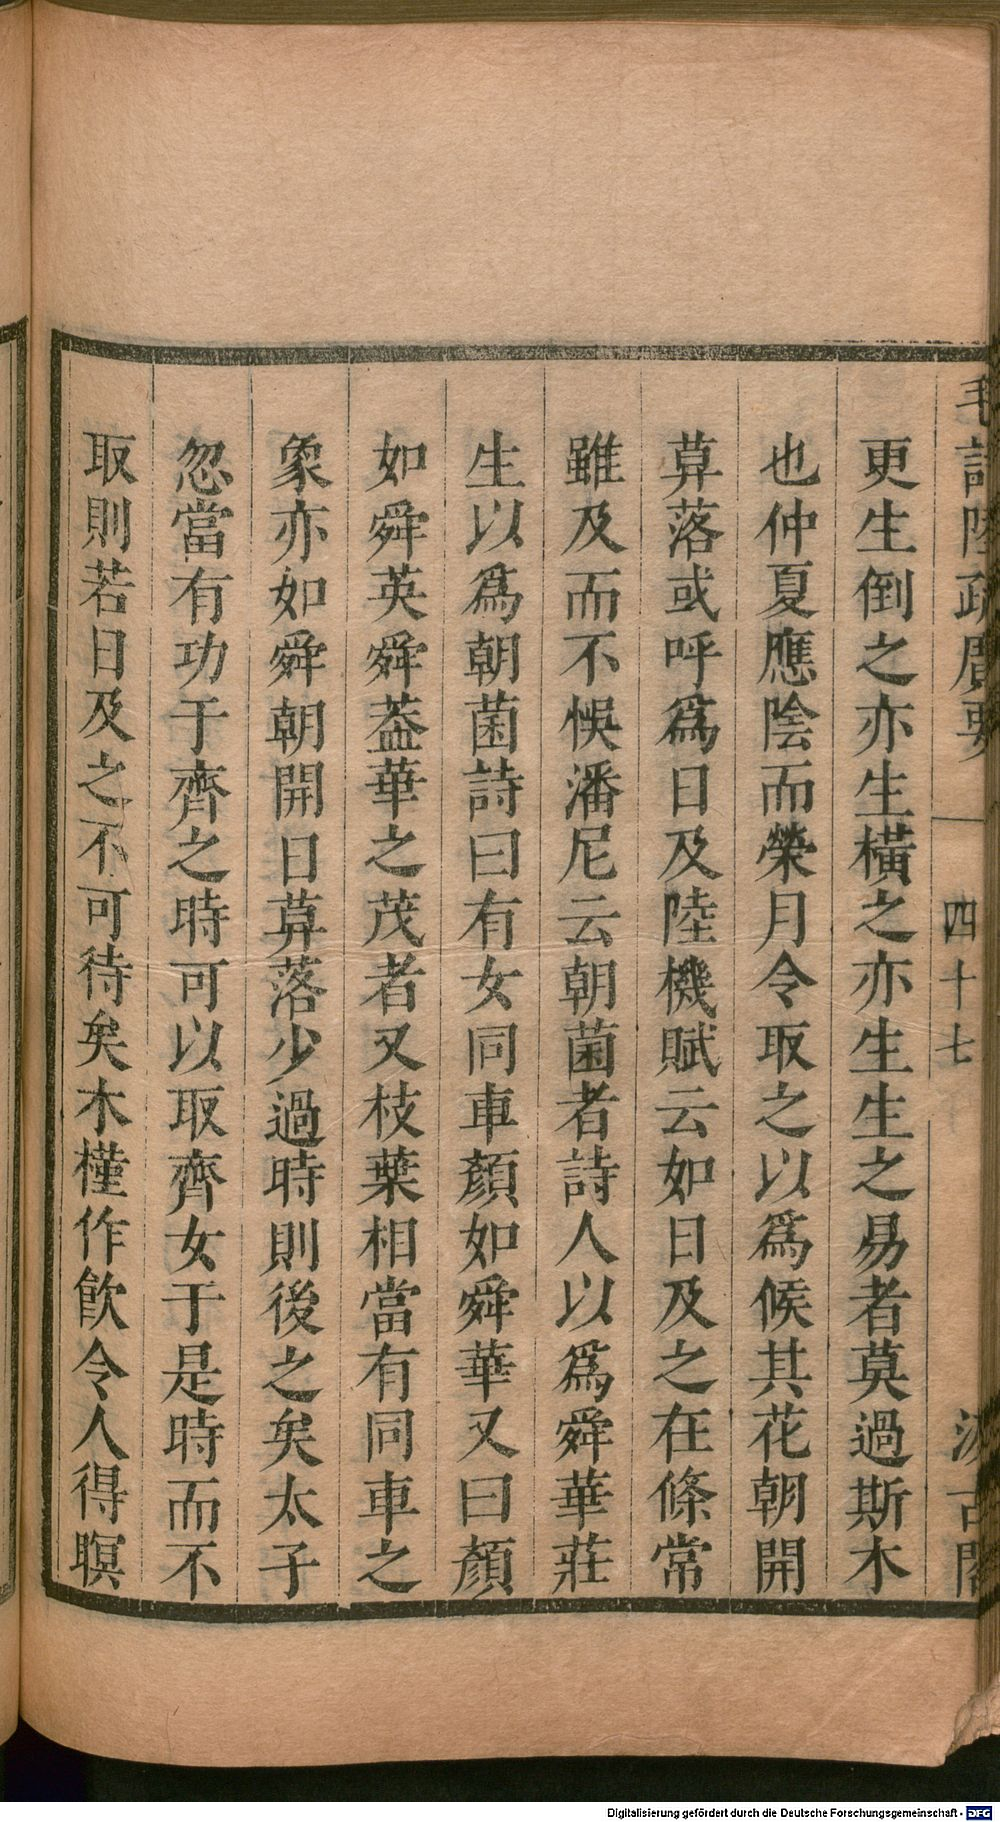 毛詩陸疏廣要
四十七
汲古閣
更生倒之亦生橫之亦生生之易者莫過斯木
也仲夏應陰而榮月令取之以爲候其花朝開
萛落或呼爲日及陸機賦云如日及之在條常
雖及而不悞潘尼云朝菌者詩人以爲舜華莊
生以爲朝菌詩曰有女同車顏如舜華又曰顏
如舜英舜葢華之茂者又枝葉相當有同車之
象亦如舜朝開日萛落少過時則後之矣太子
忽當有功于齊之時可以取齊女于是時而不
取則若日及之不可待矣木槿作飮令人得瞑
Digitalisierung gefördert durch die Deutsche Forschungsgemeinschaft - DFG